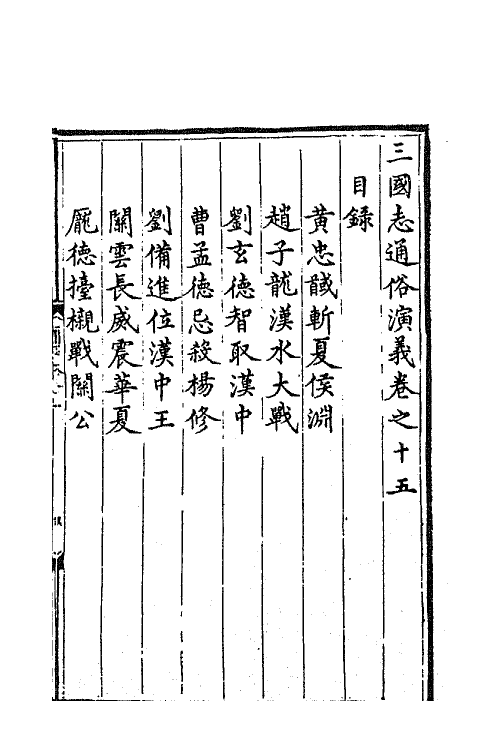 三國志通俗演義卷之十五
目錄
黃忠馘斬夏侯淵
趙子龍漢水大戰
劉玄德智取漢中
曹孟德忌殺楊修
劉備進位漢中王
關雲長威震華夏
龐德擡櫬戰關公